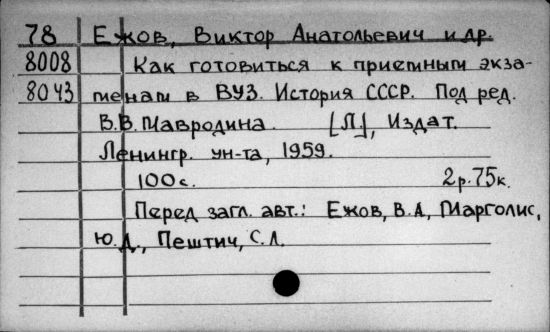 78 Ежов, Виктор Анатольевич и др.
8008 Как готовиться к приемным экза-
8043 менам в ВУЗ. История СССР. Под ред.
В.В. Мавродина. [Л.], Издат.
Ленингр. ун-та, 1959.
100с. 2р.75к.
Перед загл. авт.: Ежов, В.А, Марголис,
Ю.Д., Пештич, С.Л.